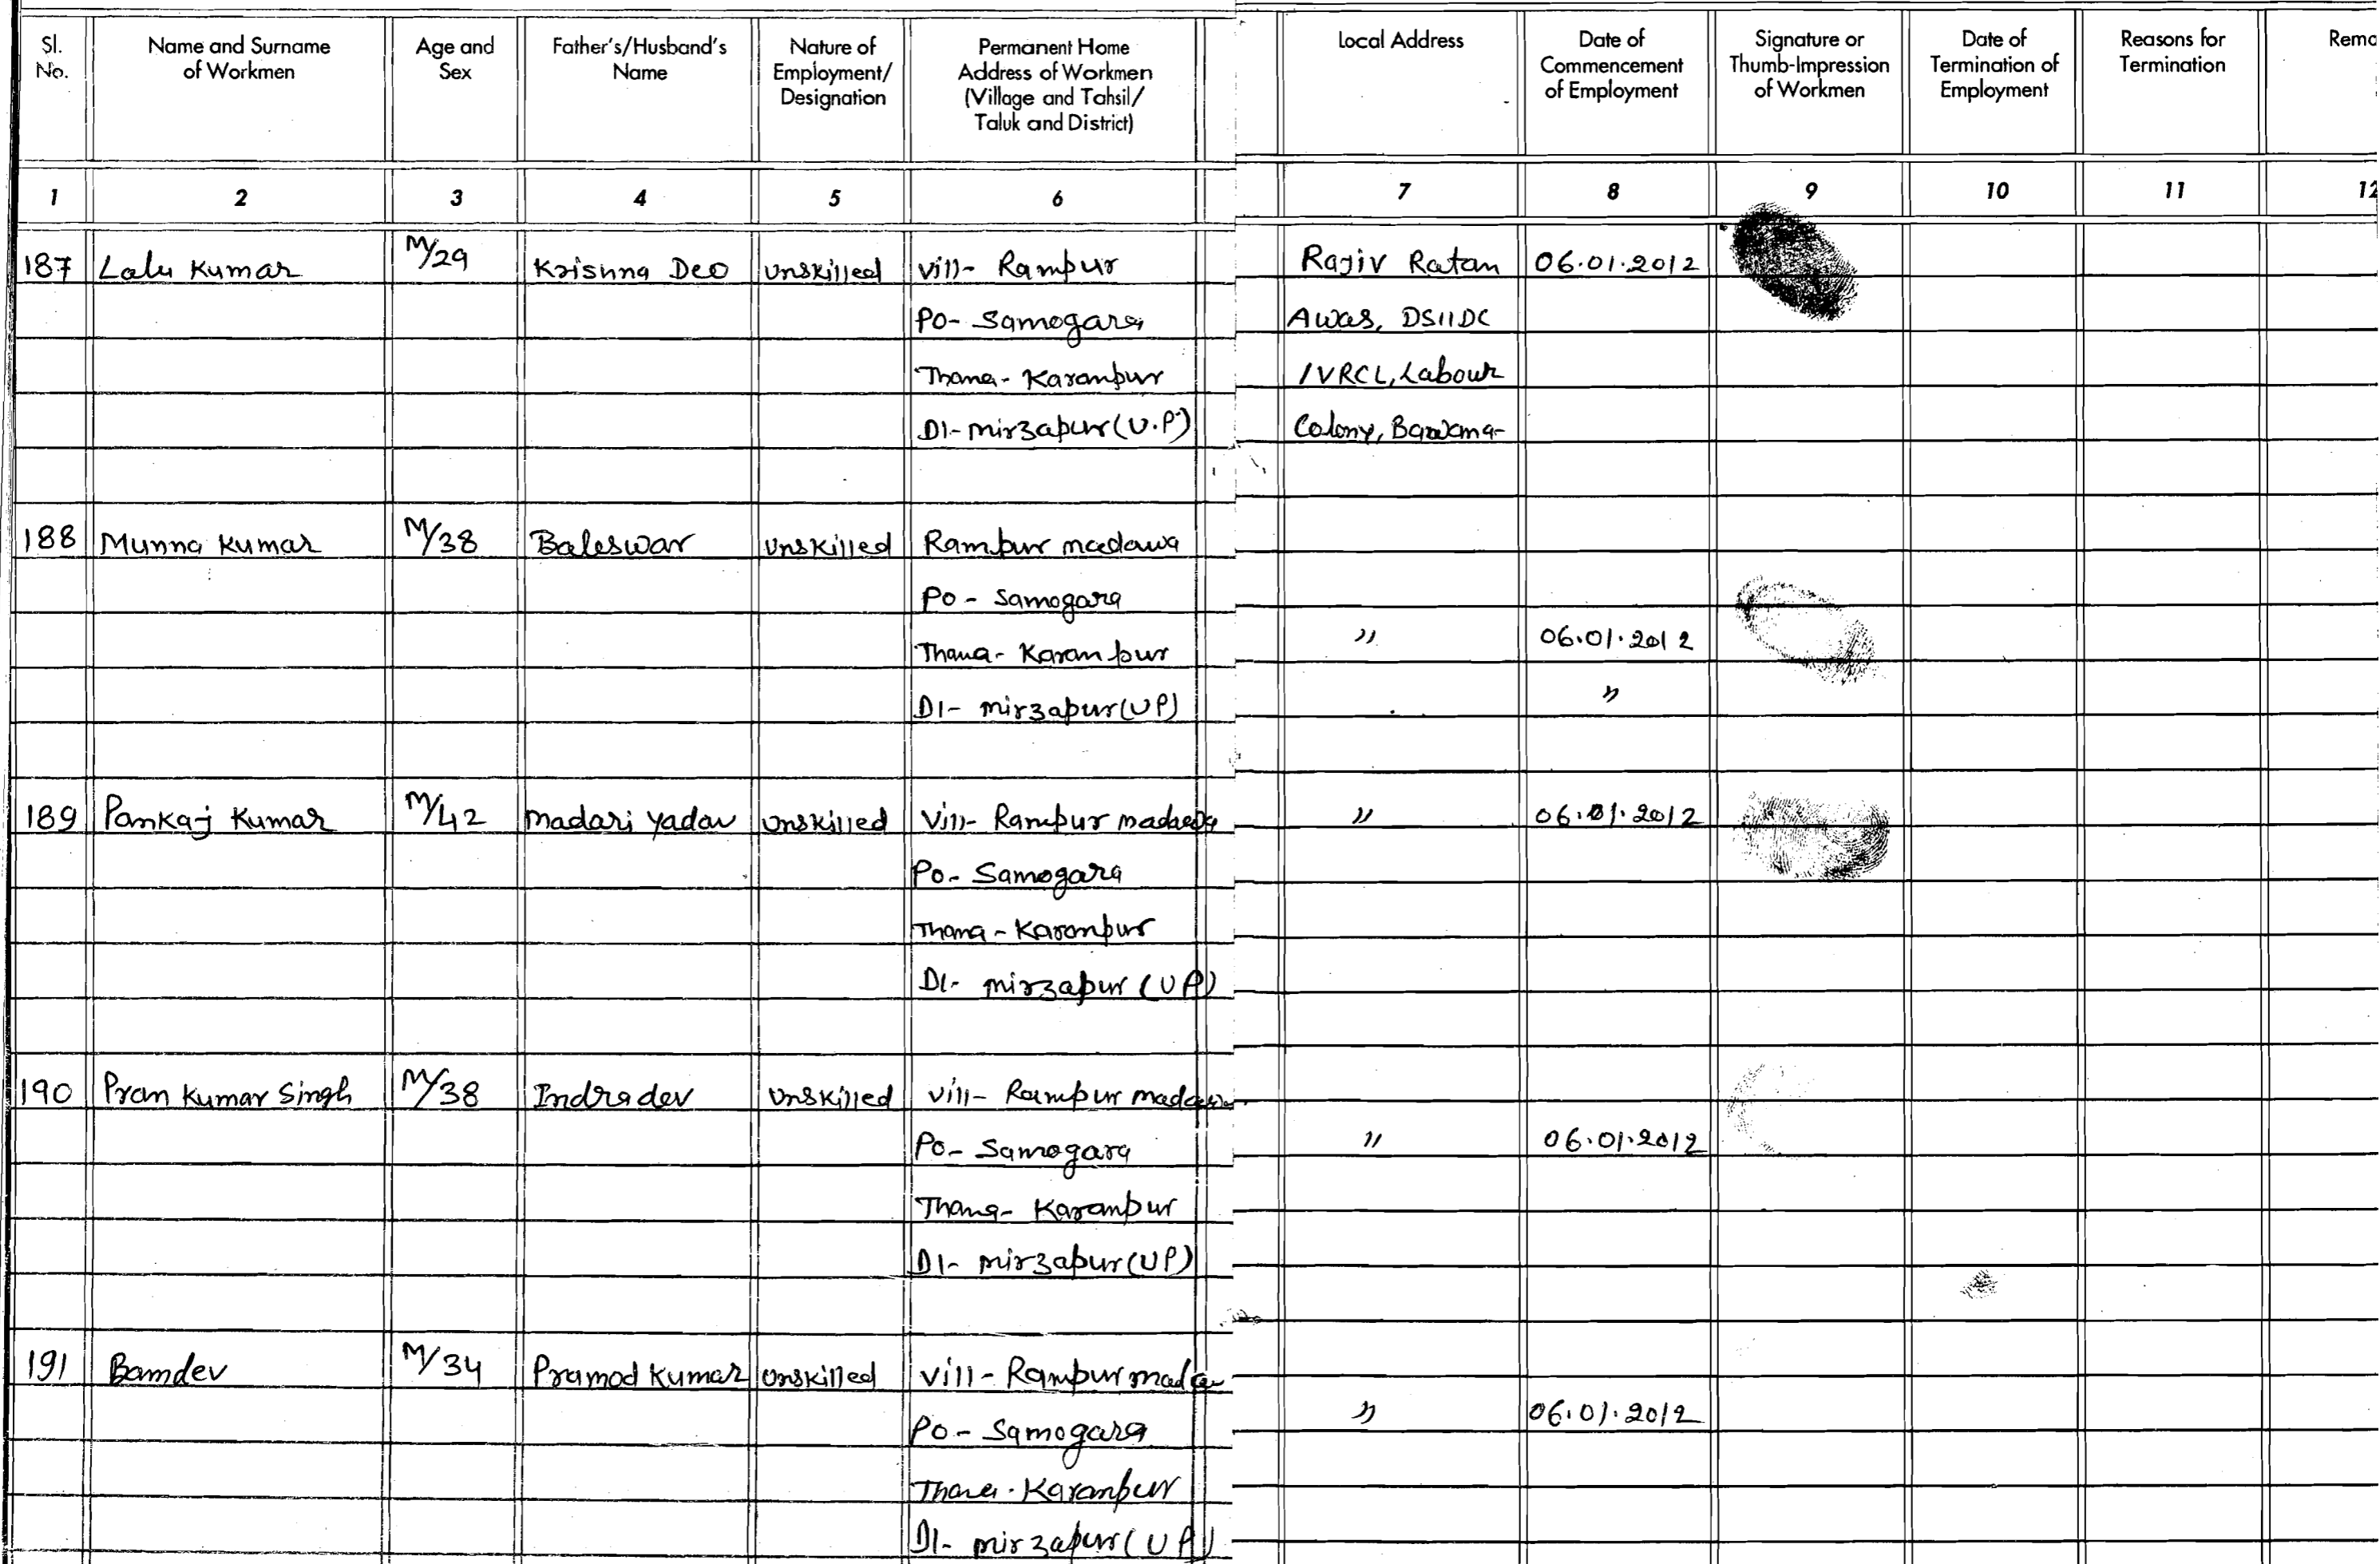 Sl. No. Name and Surname of Workmen Age and Sex Father's/Husband's Name Nature of Employment/ Designation Permanent Home Address of Workmen (Village and Tahsil/ Taluk and District) Local Address Date of Commencement of Employment Signature or Thumb-Impression of Workmen Date of Termination of Employment Reasons for Termination
1 2 3 4 5 6 7 8 9 10 11 12
187 Lalu Kumar M/29 Krishna Deo Unskilled Vill- Rampur Rajiv Ratan 06.01.2012
Po- Samogara Awas, DSIIDC
Thana- Karanpur IVRCL, Labour
DI- mirzapur (U.P) Colony,
188 Munna Kumar M/38 Baleswar Unskilled Rampur madawa
Po - Samogara
Thana- Karanpur " 06.01.2012
DI- mirzapur (UP) "
189 Pankaj Kumar M/42 madari yadav Unskilled Vill- Rampur madawa " 06.01.2012
Po- Samogara
Thana - Karanpur
DI- mirzapur (UP)
190 Pran Kumar Singh M/38 Indradev Unskilled Vill- Rampur madawa
Po- Samogara " 06.01.2012
Thana- Karanpur
DI- mirzapur (UP)
191 Bamdev M/34 Pramod Kumar Unskilled Vill- Rampur
Po- Samogara " 06.01.2012
Thana- Karanpur
DI- mirzapur (UP)